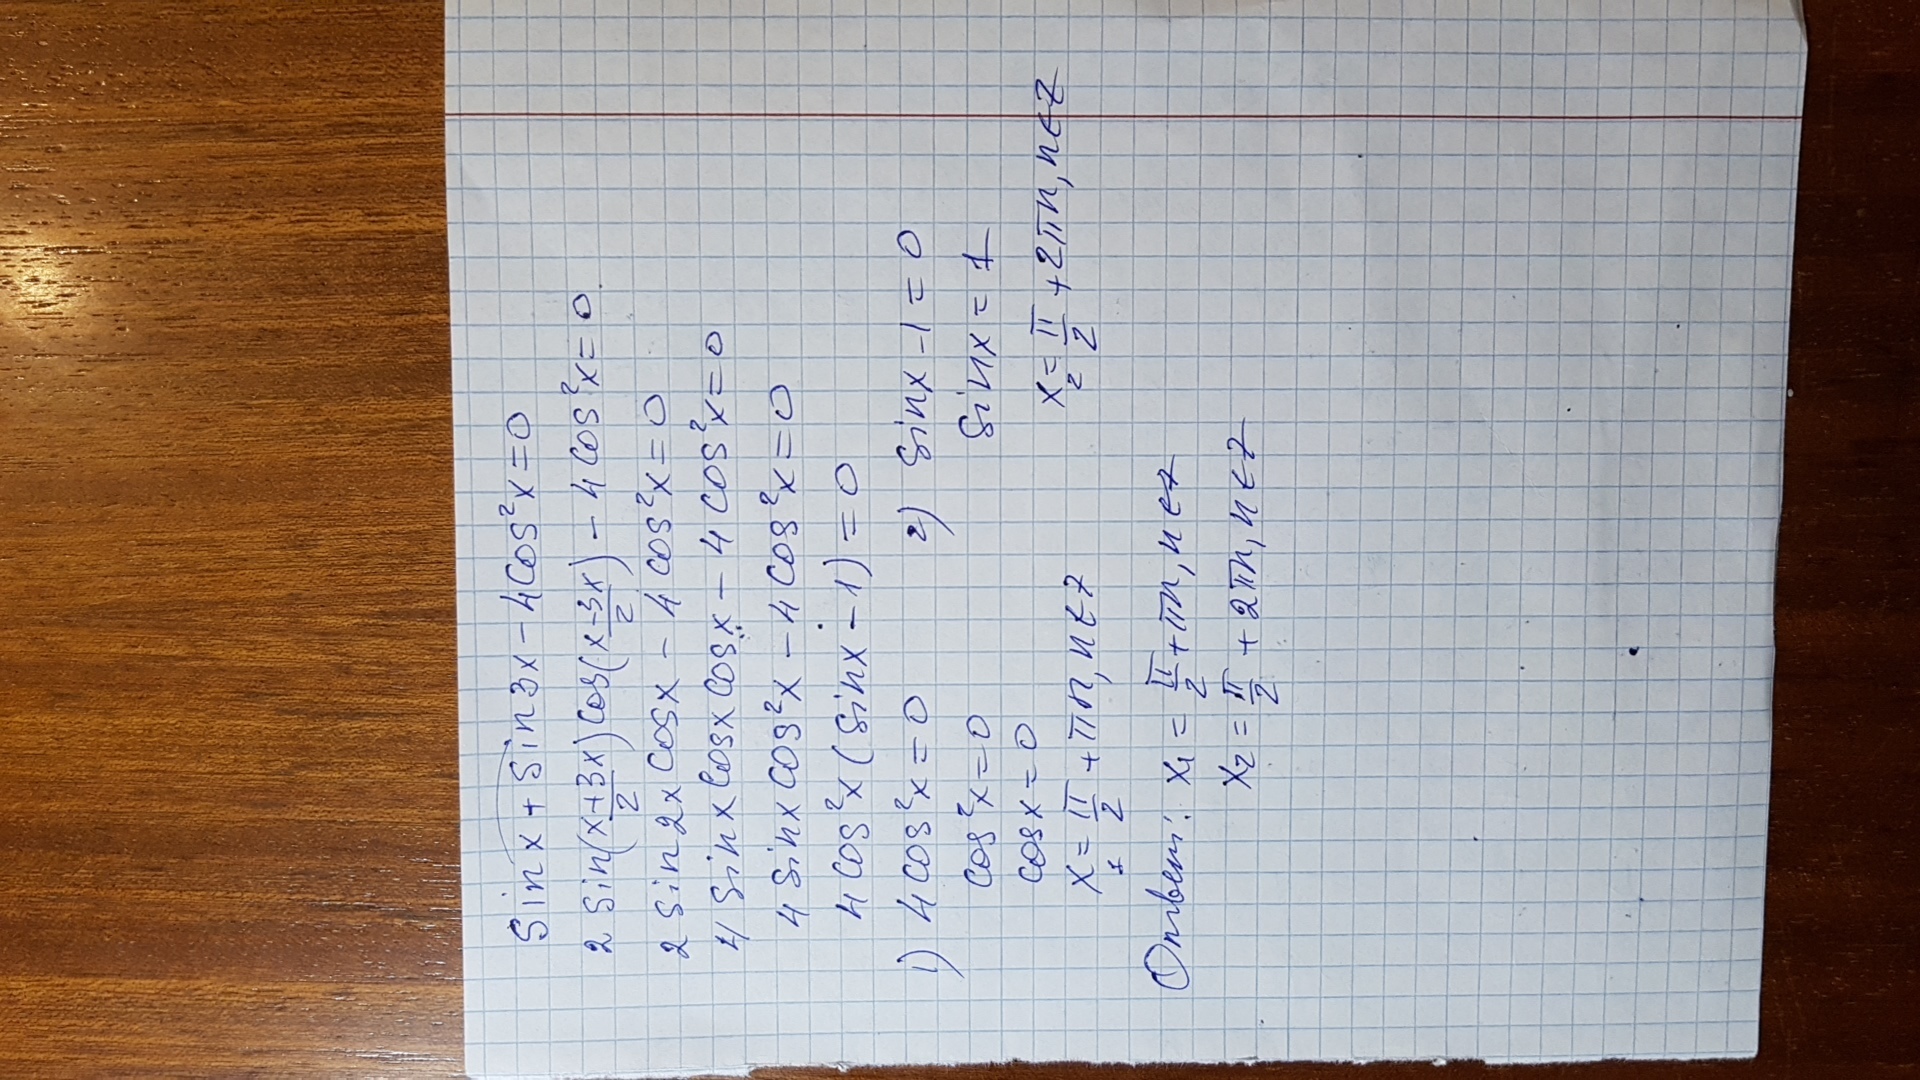 Sinx + Sin3x - 4Cos²x = 0
2 Sin(x+3x/2) Cos(x-3x/2) - 4 Cos²x = 0.
2 Sin2x Cosx - 4 Cos²x = 0
4 Sinx Cosx Cosx - 4 Cos²x = 0
4 Sinx Cos²x - 4 Cos²x = 0
4 Cos²x (Sinx - 1) = 0
1) 4 Cos²x = 0 2) Sinx - 1 = 0
Cos²x = 0 Sinx = 1
Cosx = 0 x₂ = π/2 + 2πn, n∈Z
x₁ = π/2 + πn, n∈Z
Ответ: x₁ = π/2 + πn, n∈Z
x₂ = π/2 + 2πn, n∈Z